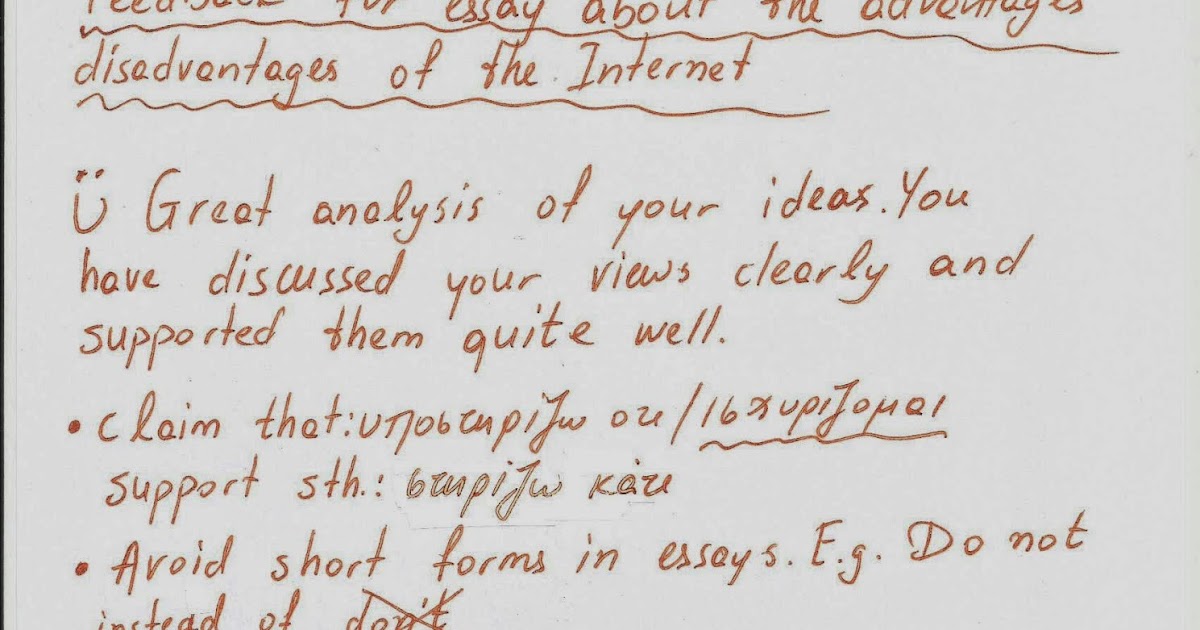 feedback for essay about the advantages
disadvantages of the Internet
Ü Great analysis of your ideas. You
have discussed your views clearly and
supported them quite well.
• claim that: υποστηρίζω οτι/ισχυρίζομαι
support sth.: στηρίζω κάτι
• Avoid short forms in essays. E.g. Do not
instead of don't